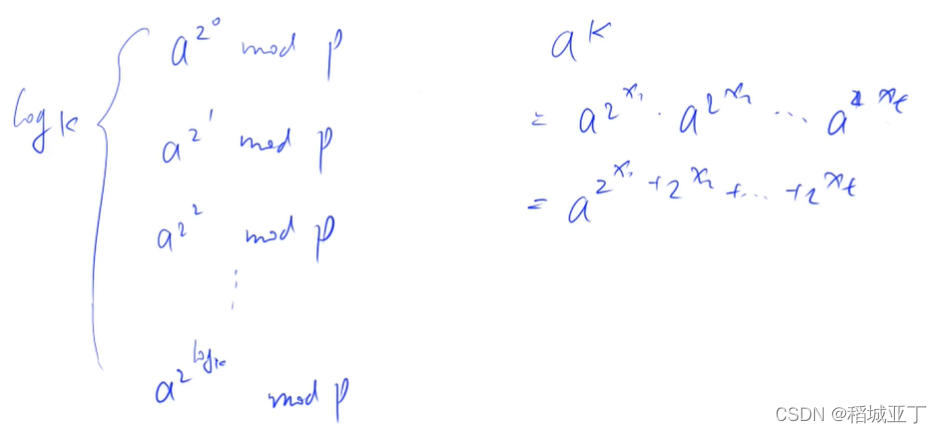 log k
a^{2^0} mod p
a^{2^1} mod p
a^{2^2} mod p
⋮
a^{2^{log k}} mod p
a^k
= a^{2^{x_1}} · a^{2^{x_2}} ... a^{2^{x_t}}
= a^{2^{x_1} + 2^{x_2} + ... + 2^{x_t}}
CSDN @稻城亚丁